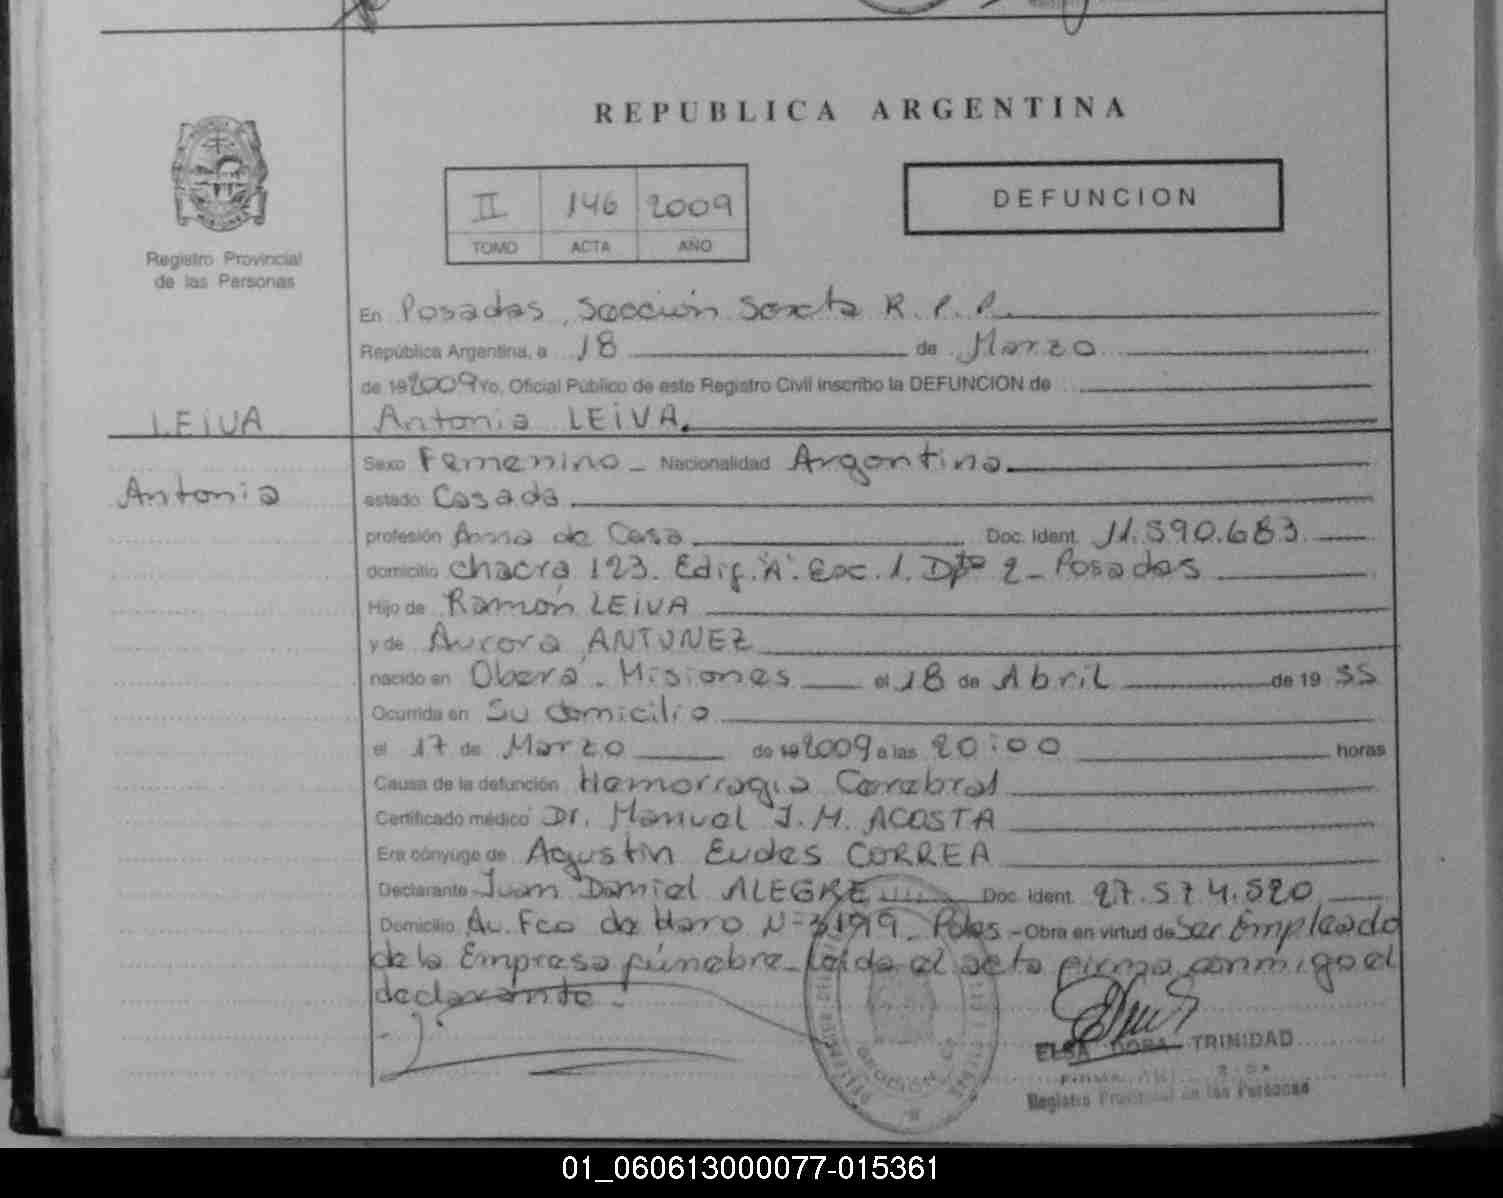 REPUBLICA ARGENTINA
II 146 2009
TOMO ACTA AÑO
DEFUNCION
Registro Provincial
de las Personas
En Posadas, Sección Sexta R.P.P.
República Argentina, a 18 de Marzo
de 192009 Yo, Oficial Público de este Registro Civil inscribo la DEFUNCION de
LEIVA
Antonia LEIVA.
Antonia
Sexo Femenino Nacionalidad Argentina
estado Casada
profesión Ama de Casa Doc. Ident. 11.590.683
domicilio Chacra 123. Edif. "A". Esc. 1. Dpto 2 - Posadas
Hijo de Ramón LEIVA
y de Aurora ANTUNEZ
nacido en Oberá - Misiones el 18 de Abril de 19 55
Ocurrida en Su domicilio
el 17 de Marzo de 192009 a las 20:00 horas
Causa de la defunción Hemorragia Cerebral
Certificado médico Dr. Manuel J.M. ACOSTA
Era cónyuge de Agustin Eudes CORREA
Declarante Juan Daniel ALEGRE Doc. Ident. 27.574.520
Domicilio Av. Fco de Haro Nº 3199 - Pdas - Obra en virtud de Ser Empleado
de la Empresa fúnebre - Leída el acta firma conmigo el
declarante -
ELSA DORA TRINIDAD
Registro Provincial de las Personas
01_060613000077-015361